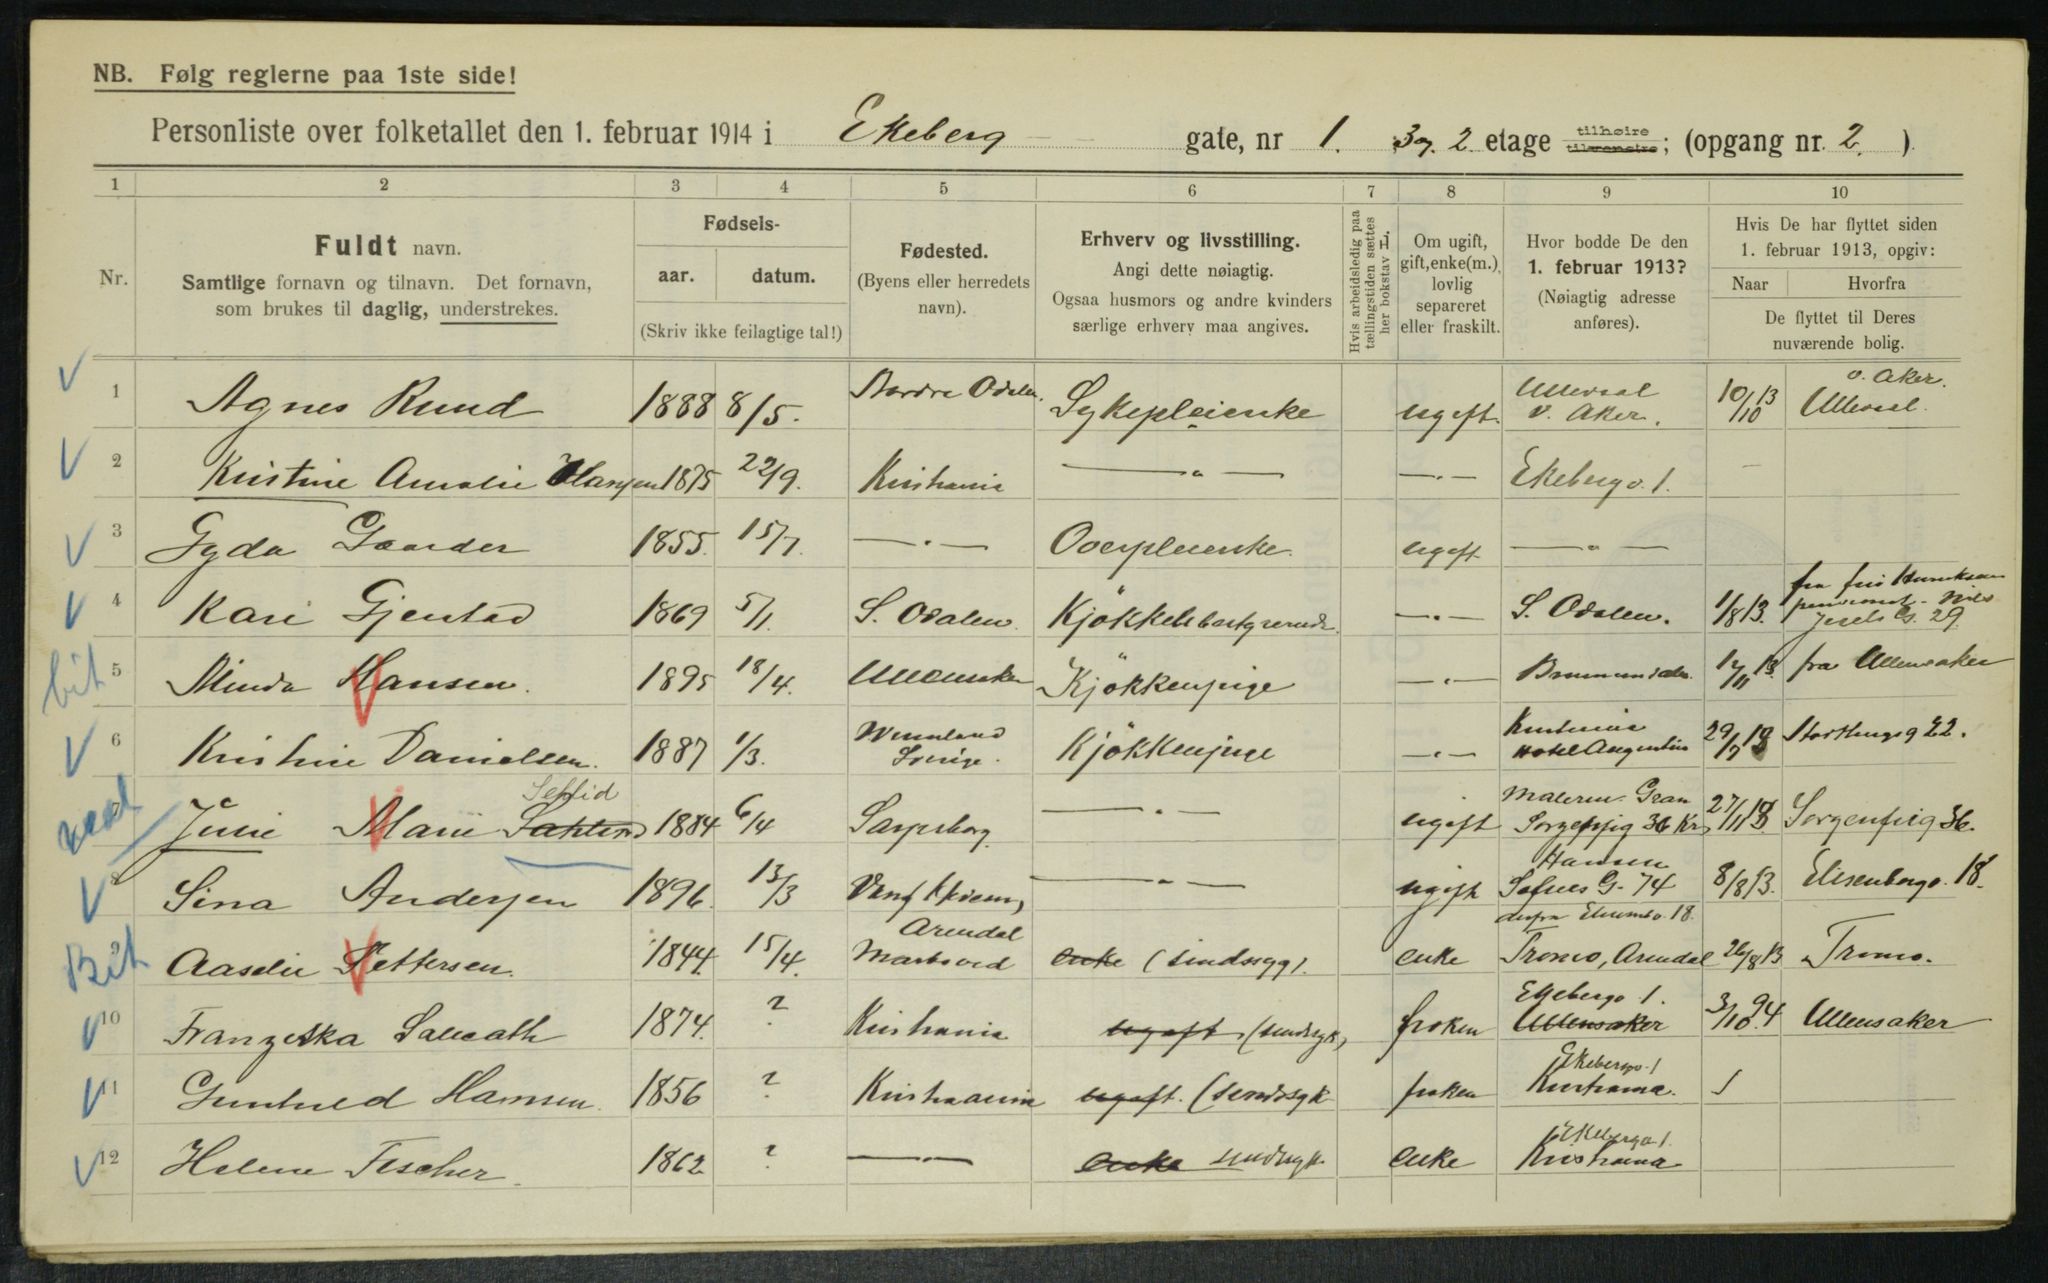 NB. Følg reglerne paa 1ste side!
Personliste over folketallet den 1. februar 1914 i Ekeberg gate, nr 1. 3 og 2. etage tilhøire tilvenstre; (opgang nr. 2. )
1 2 3 4 5 6 7 8 9 10
Nr.
Fuldt navn.
Samtlige fornavn og tilnavn. Det fornavn,
som brukes til daglig, understrekes.
Fødsels-
aar. datum.
(Skriv ikke feilagtige tal!)
Fødested.
(Byens eller herredets
navn).
Erhverv og livsstilling.
Angi dette nøiagtig.
Ogsaa husmors og andre kvinders
særlige erhverv maa angives.
Hvis arbeidsledig paa
tællingstiden sættes
her bokstav L.
Om ugift,
gift, enke(m.),
lovlig
separeret
eller fraskilt.
Hvor bodde De den
1. februar 1913?
(Nøiagtig adresse
anføres).
Hvis De har flyttet siden
1. februar 1913, opgiv:
Naar Hvorfra
De flyttet til Deres
nuværende bolig.
1 Agnes Ruud 1888 8/5. Nordre Odalen. Sykepleierske ugift. Ullevaal v. Aker. 10/10 13 Ullevaal v. Aker.
2 Kristine Amalie Hansen 1875 22/9. Kristiania — " — — " — Ekebergv. 1. —
3 Gyda Gaarder 1855. 15/7. — " — Overpleierske. ugift — " —
4 Kari Gjerstad 1869 5/1. S. Odalen. Kjøkkelsbestyrerinde. — " — S. Odalen. 1/8 13. fra pensionat Nils Juels G. 29
5 Minda Hansen. 1895 18/4. Ullensaker Kjökkenpige — " — 13 fra Ullensaker
bit
6 Kristine Danielsen. 1887 1/3. Wermland Sverige. Kjökkenpige — " — Kristiania Hotel Argentin 29/ 13 Storthingsg 22.
7 Julie Marie 1884 6/4 Sarpsborg — " — ugift Malerm. Gran Sorgenfrig 36 Kr. 27/11 13 Sorgenfrig 36.
8 Sina Andersen 1896. 13/3 — " — ugift Hansen Sofies G. 74 derfra Elisenbv. 18. 8/8 13. Elisenbergv. 18.
Bit
9 Aaselie Pettersen. 1844. 15/4. Arendal enke (sindssyg). enke Tromo, Arendal 26/8 13 Tromo.
10 Franziska 1874. ? Kristiania ugift (sindssyk) frøken Ekebergv 1. Ullensaker 3/10 94 Ullensaker
11 Gunhild Hansen. 1856 ? Kristiania ugift. (sindssyk frøken Ekebergv. 1 Kristiania.
12 Helene Fischer. 1862 ? — " — enke sindssyk enke Ekebergv 1. Kristiania